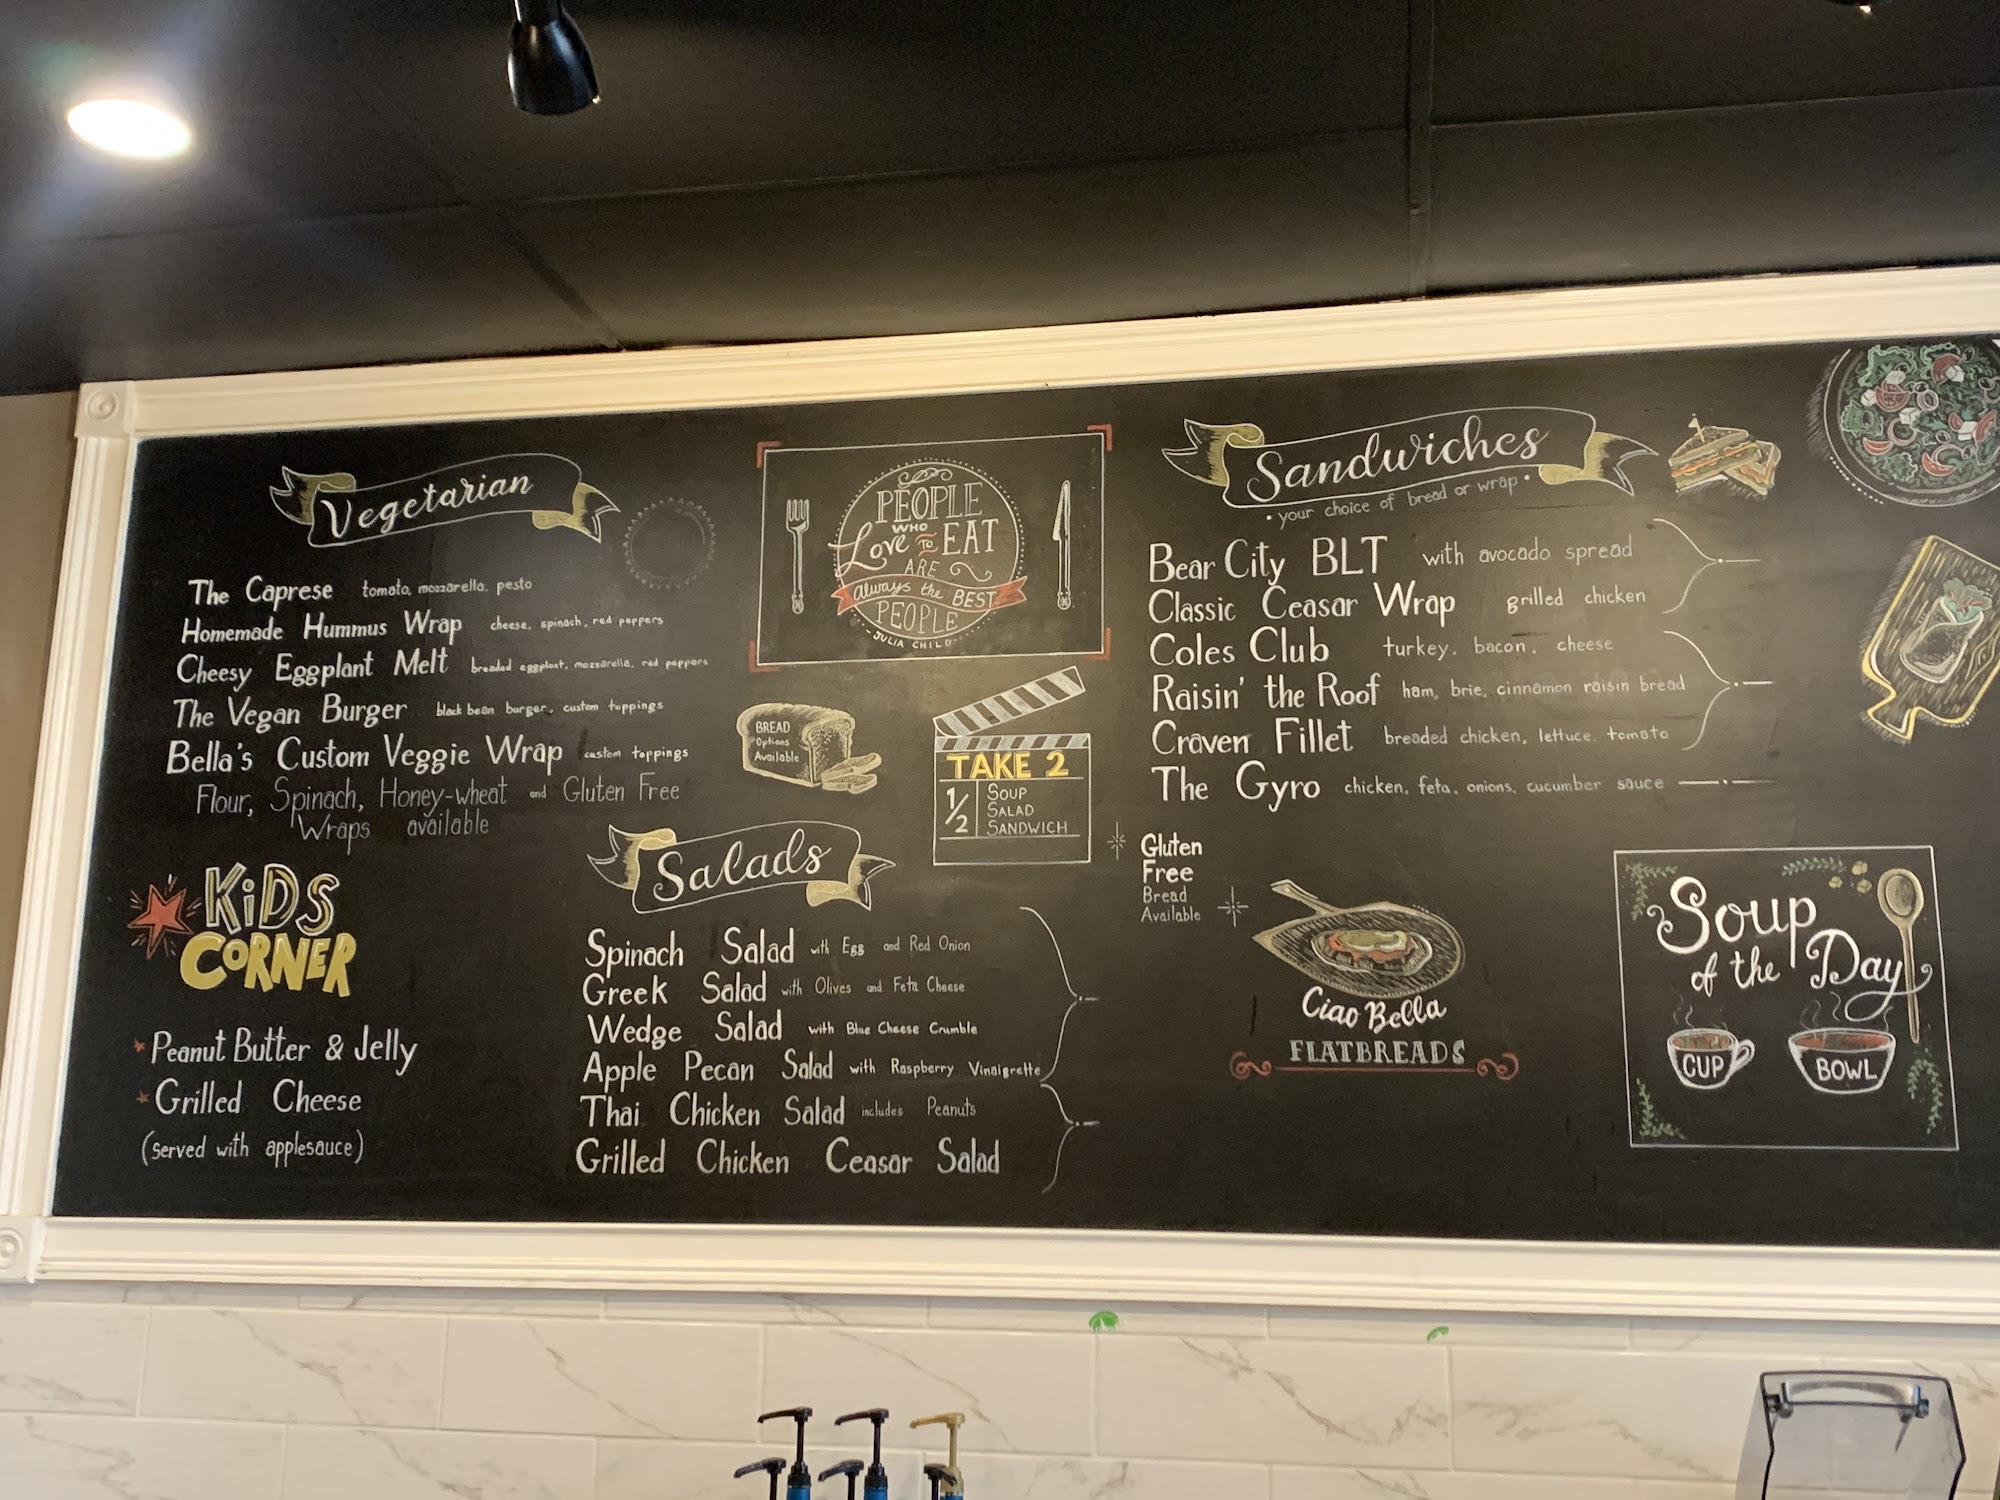 Vegetarian
The Caprese tomato, mozzarella, pesto
Homemade Hummus Wrap cheese, spinach, red peppers
Cheesy Eggplant Melt breaded eggplant, mozzarella, red peppers
The Vegan Burger black bean burger, custom toppings
Bella's Custom Veggie Wrap custom toppings
Flour, Spinach, Honey-wheat and Gluten Free
Wraps available
KiDS
CORNER
Peanut Butter & Jelly
Grilled Cheese
(served with applesauce)
PEOPLE
WHO
Love TO EAT
ARE
always the BEST
PEOPLE
-JULIA CHILD-
BREAD
Options
Available
TAKE 2
1/2
SOUP
SALAD
SANDWICH
Salads
Spinach Salad with Egg and Red Onion
Greek Salad with Olives and Feta Cheese
Wedge Salad with Blue Cheese Crumble
Apple Pecan Salad with Raspberry Vinaigrette
Thai Chicken Salad includes Peanuts
Grilled Chicken Ceasar Salad
Sandwiches
• your choice of bread or wrap •
Bear City BLT with avocado spread
Classic Ceasar Wrap grilled chicken
Coles Club turkey, bacon, cheese
Raisin' the Roof ham, brie, cinnamon raisin bread
Craven Fillet breaded chicken, lettuce, tomato
The Gyro chicken, feta, onions, cucumber sauce
Gluten
Free
Bread
Available
Ciao Bella
FLATBREADS
Soup
of the Day
CUP
BOWL